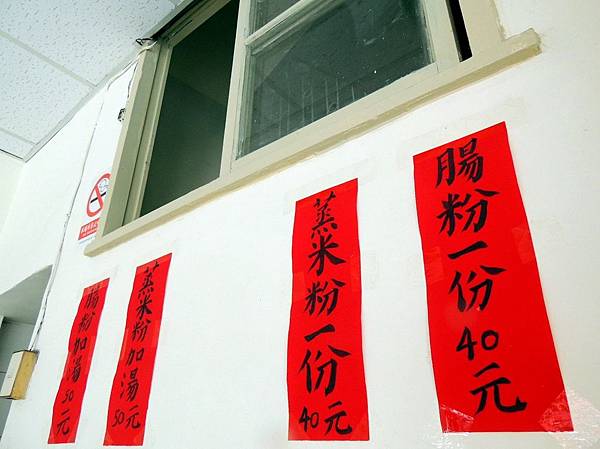 腸粉一份40元
蒸米粉一份40元
蒸米粉加湯50元
腸粉加湯50元